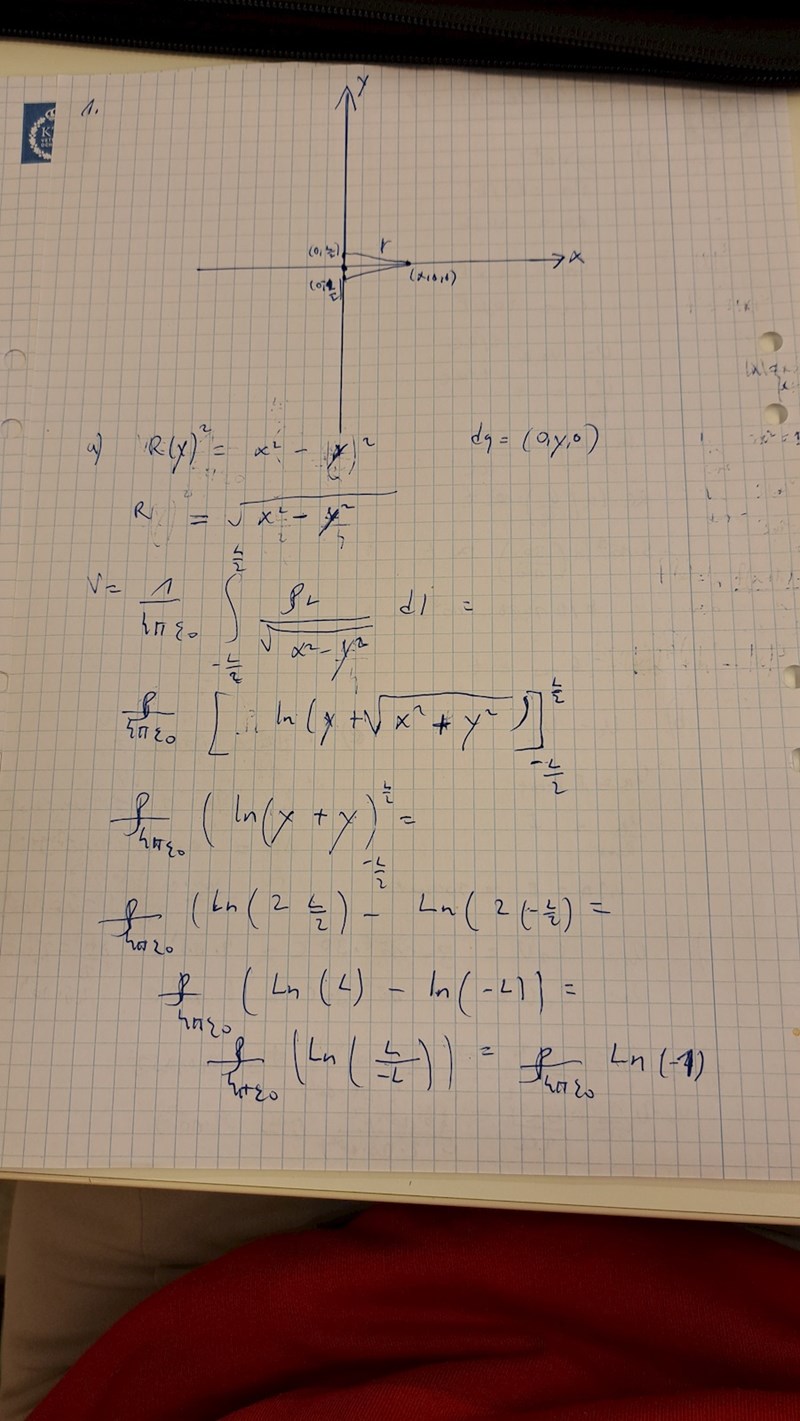 1.
y
(0, L/2)
r
x
(0, -L/2)
(x,0,0)
a) R(y)² = x² - (y)² dq = (0,y,0)
R = √(x² - y²)
V = 1/(4πε₀) ∫_{-L/2}^{L/2} ρL/√(x² - y²) dl =
ρ/(4πε₀) [ln(y + √(x² + y²))]_{-L/2}^{L/2}
ρ/(4πε₀) (ln(y + y)_{-L/2}^{L/2} =
ρ/(4πε₀) (Ln(2 L/2) - Ln(2(-L/2) =
ρ/(4πε₀) (Ln(L) - ln(-L)) =
ρ/(4πε₀) (Ln(L/-L)) = ρ/(4πε₀) Ln(-1)